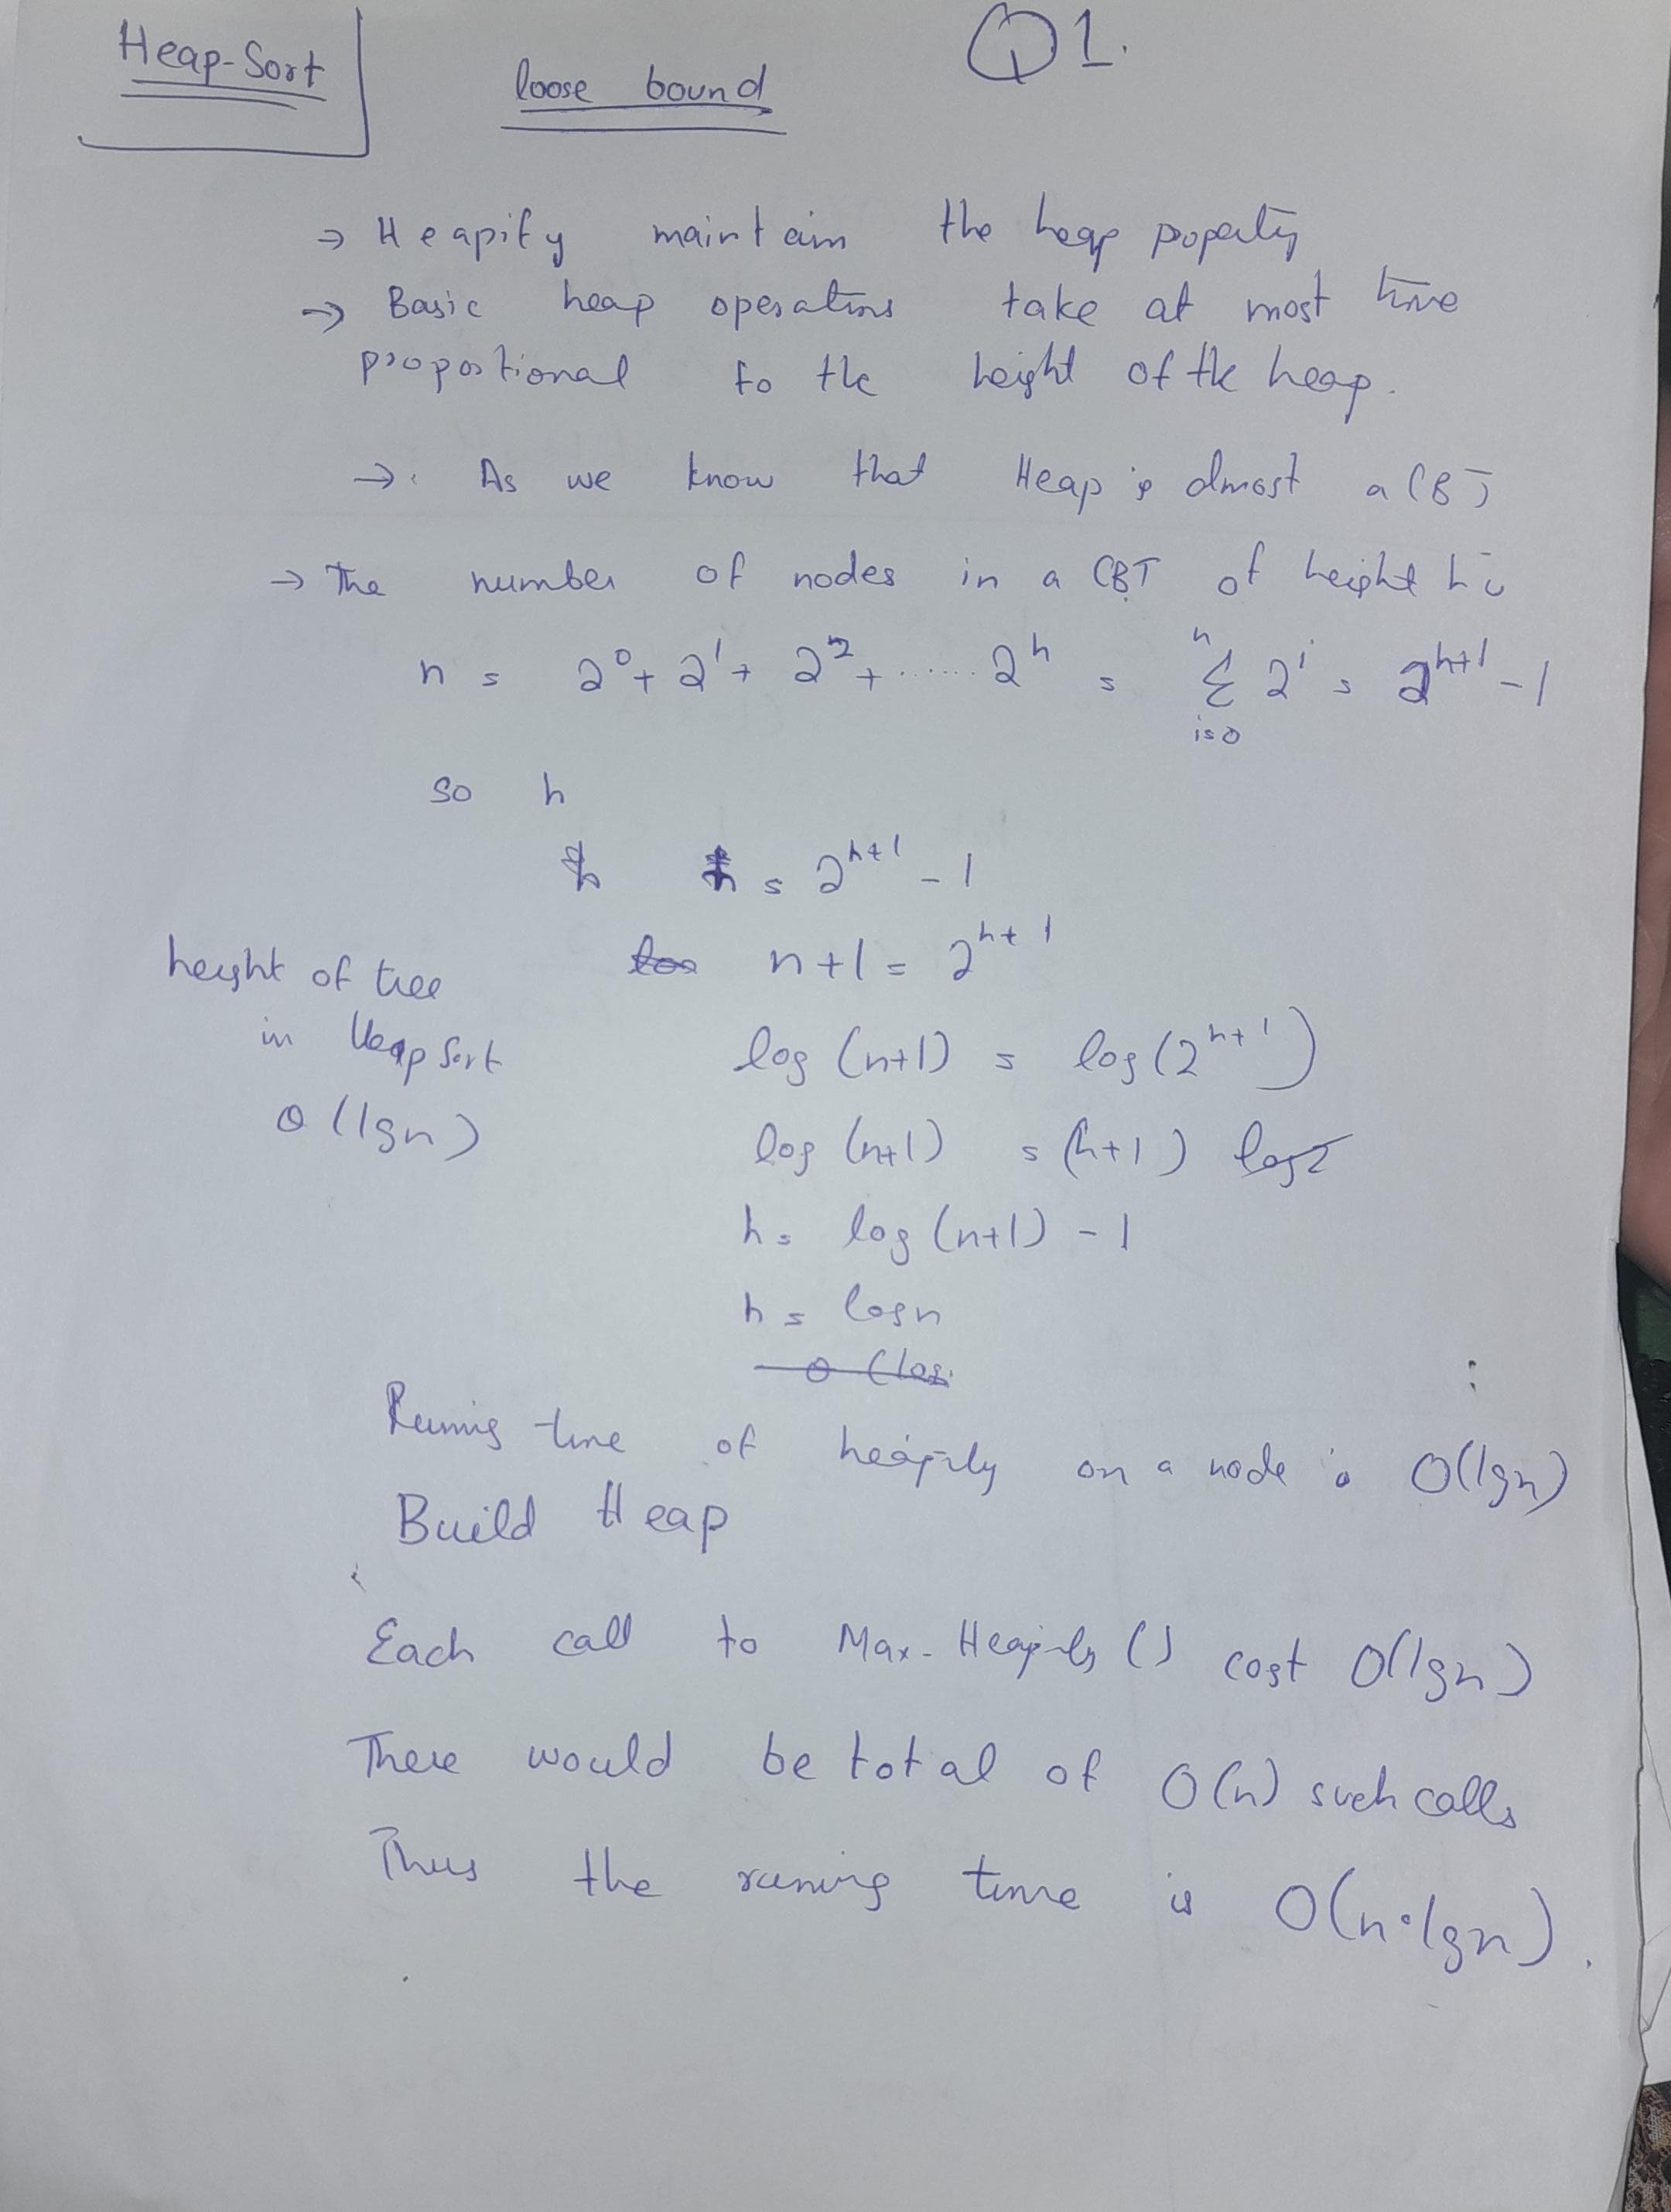 Heap-Sort
loose bound
Q1.
→ Heapify maintain the heap property
→ Basic heap operations take at most time
proportional to the height of the heap.
→ As we know that Heap is almost a CBT
→ The number of nodes in a CBT of height h is
n = 2⁰ + 2¹ + 2² + ...... 2ʰ = Σ 2ⁱ = 2ʰ⁺¹ - 1
i=0
so h
n = 2ʰ⁺¹ - 1
n+1 = 2ʰ⁺¹
height of tree
in Heap Sort
θ(lgn)
log (n+1) = log (2ʰ⁺¹)
log (n+1) = (h+1) log2
h = log (n+1) - 1
h = logn
Runing time of heapify on a node is O(lgn)
Build Heap
Each call to Max-Heapify () cost O(lgn)
There would be total of O(n) such calls
Thus the runing time is O(n·lgn).